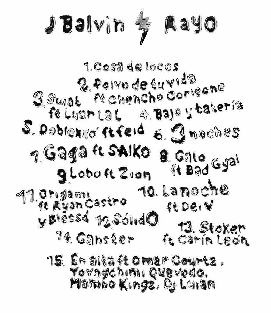 J Balvin Rayo
1. Cosa de locos
2. Polvo de tu vida
ft Chencho Corleone
3. Swat
ft Luar La L
4. Bajo y batería
5. Doblexxó ft feid
6. 3 noches
7. Gaga ft SAIKO
8. Gato
ft Bad Gyal
9. Lobo ft Zion
10. La noche
ft Dei V
11. Origami
ft Ryan Castro
y Blessd
12. Sólido
13. Stoker
ft Carin León
14. Gánster
15. En alta ft Omar Courtz,
Youngchimi, Quevedo,
Mambo Kingz, Dj Luian